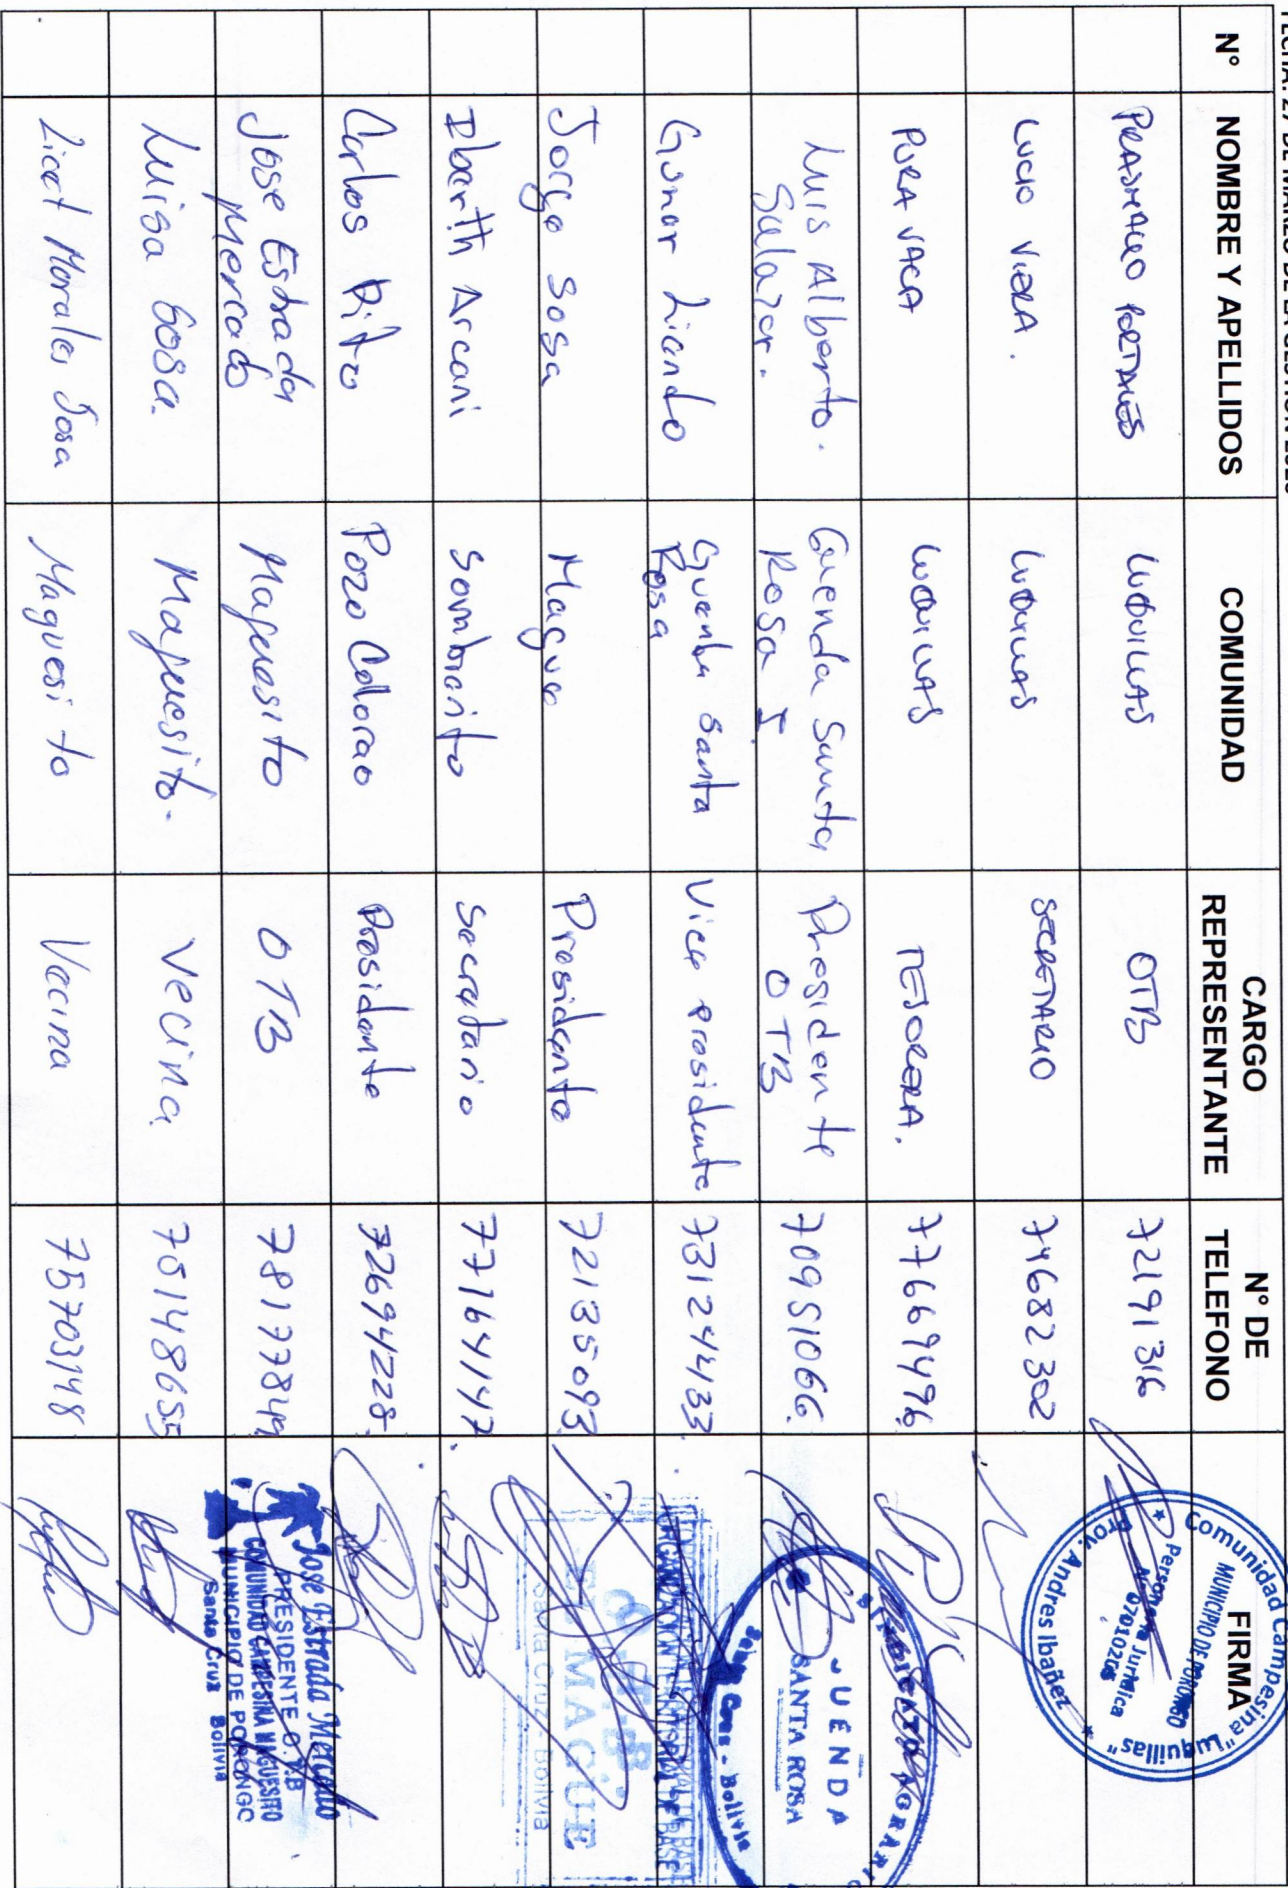 N° NOMBRE Y APELLIDOS COMUNIDAD CARGO REPRESENTANTE N° DE TELEFONO FIRMA
LUQUILLAS OTB 72191316
Comunidad Campesina "Luquillas"
MUNICIPIO DE PORONGO
Personeria Juridica
Prov. Andres Ibañez
LUCIO VIERA. LUQUILLAS SECRETARIO 74682302
PURA VACA LUQUILLAS TESORERA. 77669496
Luis Alberto. Salazar. Guenda Santa Rosa I Presidente OTB 70951066.
SANTA ROSA
Gunar Liendo Guenda Santa Rosa Vice presidente 73124433.
Jorge Sosa Mague Presidente 72135093
O.T.B.
EL MAGUE
Santa Cruz - Bolivia
Ibarth Arcani Sombrerito Secretario 77164147.
Carlos Rito Pozo Colorao Presidente 72694228.
Jose Estrada Mercado Maguesito OTB
Jose Estrada Mercado
PRESIDENTE O.T.B
COMUNIDAD CAMPESINA MAGUESITO
MUNICIPIO DE PORONGO
Santa Cruz Bolivia
Luisa Sosa. Maguesito. Vecina 75148655
Licet Morales Sosa Maguesito Vecina 75703148